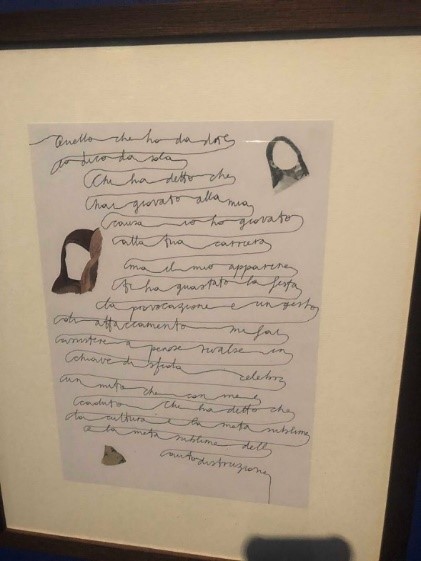 Quello che ho da dire
lo dico da sola
Chi ha detto che
hai giovato alla mia
causa io ho giovato
alla tua carriera
ma il mio apparire
ti ha guastato la festa
la provocazione è un gesto
di attaccamento mi fai
assistere a penose rivalse in
chiave di sfida celebro
un mito che con me è
caduto Chi ha detto che
la cultura è la meta sublime
è la meta sublime dell
autodistruzione